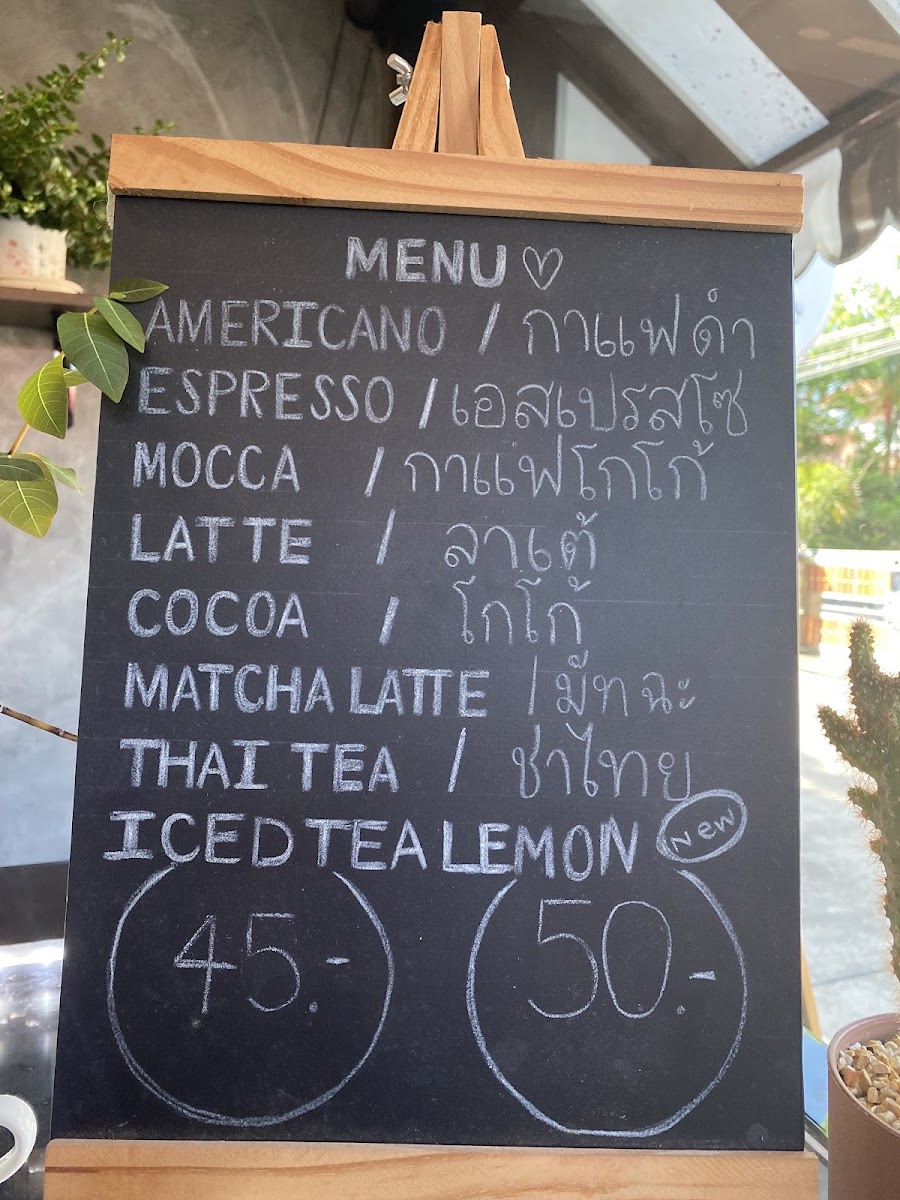 MENU ♡
AMERICANO / กาแฟดำ
ESPRESSO / เอสเปรสโซ
MOCCA / กาแฟโกโก้
LATTE / ลาเต้
COCOA / โกโก้
MATCHA LATTE / มัทฉะ
THAI TEA / ช่าไทย
ICED TEA LEMON New
45.- 50.-